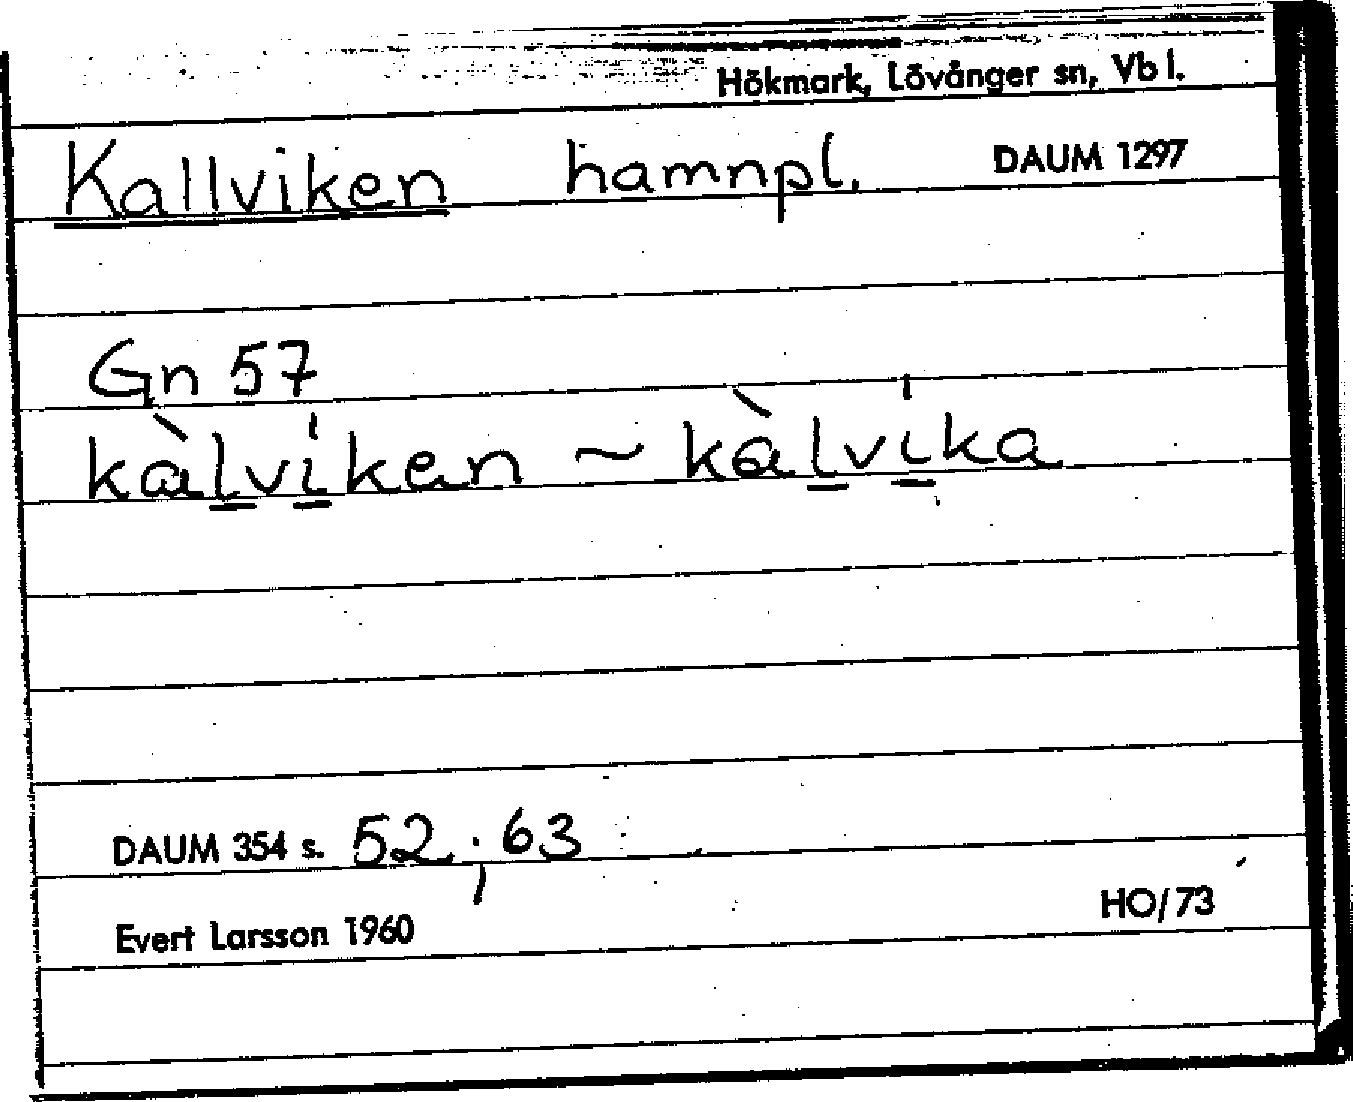 Hökmark, Lövånger sn, Vb l.
Kallviken hamnpl. DAUM 1297
Gn 57
kàl̲vi̲ken ~ kàl̲vi̲ka
DAUM 354 s. 52 ; 63
HO/73
Evert Larsson 1960